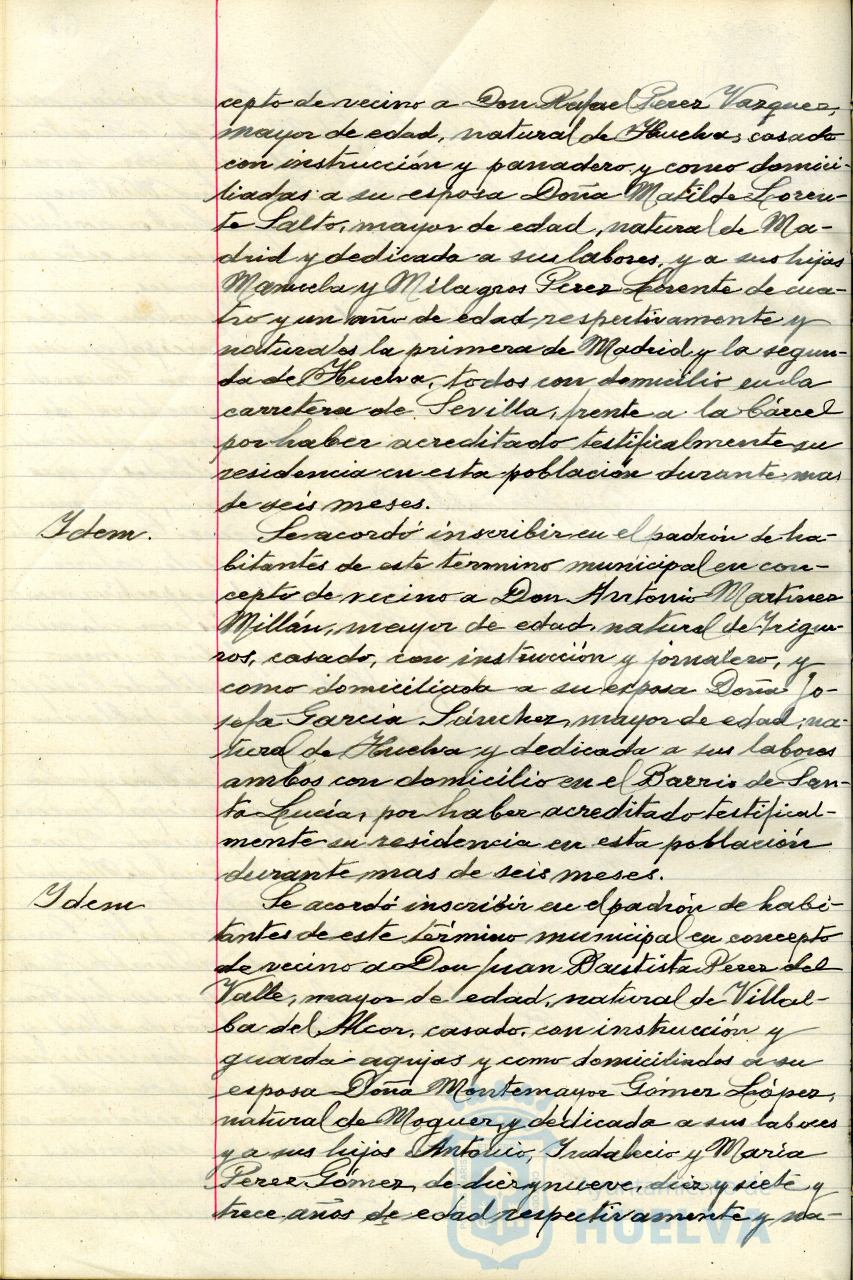 cepto de vecino a Don Rafael Perez Vazquez,
mayor de edad, natural de Huelva, casado
con instrucción y panadero, y como domici-
liadas a su esposa Doña Matilde Loren-
te Salto, mayor de edad, natural de Ma-
drid y dedicada a sus labores, y a sus hijas
Manuela y Milagros Perez Lorente de cua-
tro y un año de edad respectivamente y
naturales la primera de Madrid y la segun-
da de Huelva, todos con domicilio en la
carretera de Sevilla, frente a la Cárcel
por haber acreditado testificalmente su
residencia en esta población durante mas
de seis meses.
Idem.
Se acordó inscribir en el padrón de ha-
bitantes de este termino municipal en con-
cepto de vecino a Don Antonio Martinez
Millán, mayor de edad, natural de Trigue-
ros, casado, con instrucción y jornalero, y
como domiciliada a su esposa Doña Jo-
sefa Garcia Sánchez, mayor de edad, na-
tural de Huelva y dedicada a sus labores
ambos con domicilio en el Barrio de San-
ta Lucía, por haber acreditado testifical-
mente su residencia en esta población
durante mas de seis meses.
Idem
Se acordó inscribir en el padrón de habi-
tantes de este término municipal en concepto
de vecino a Don Juan Bautista Perez del
Valle, mayor de edad, natural de Villal-
ba del Alcor, casado, con instrucción y
guarda-agujas y como domiciliados a su
esposa Doña Montemayor Gómez López,
natural de Moguer, y dedicada a sus labores
y a sus hijos Antonio, Indalecio y María
Perez Gómez, de diez y nueve, diez y siete y
trece años de edad respectivamente y na-
Ayuntamiento de
HUELVA